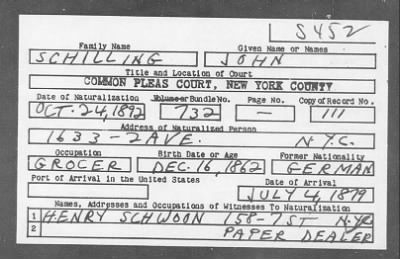 S452
Family Name Given Name or Names
SCHILLING JOHN
Title and Location of Court
COMMON PLEAS COURT, NEW YORK COUNTY
Date of Naturalization Volume or Bundle No. Page No. Copy of Record No.
OCT. 24, 1892 732 — 111
Address of Naturalized Person
1633 - 2 AVE. N.Y.C.
Occupation Birth Date or Age Former Nationality
GROCER DEC. 16, 1862 GERMAN
Port of Arrival in the United States Date of Arrival
JULY 4, 1879
Names, Addresses and Occupations of Witnesses To Naturalization
1 HENRY SCHWOON 158-7 ST N.Y.C
2 PAPER DEALER